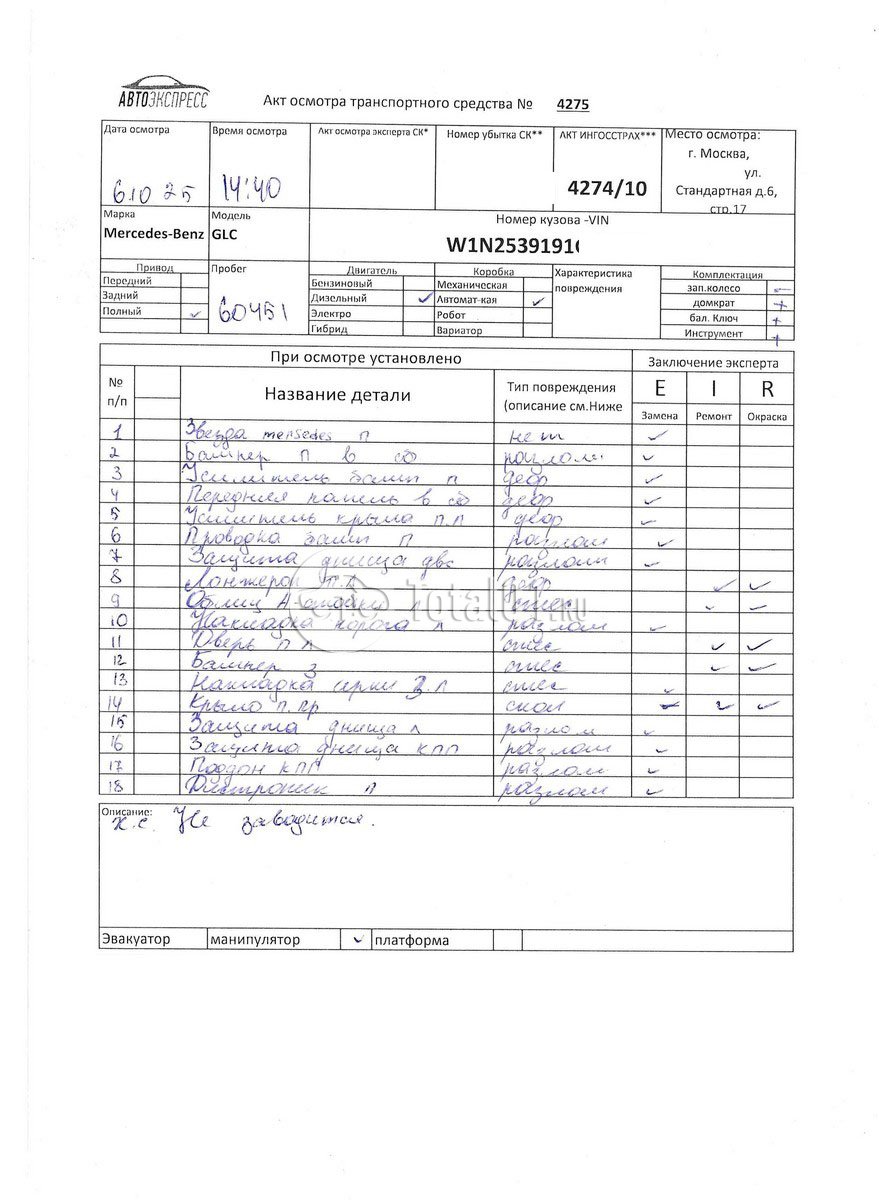 АВТОЭКСПРЕСС
Акт осмотра транспортного средства № 4275
Дата осмотра Время осмотра Акт осмотра эксперта СК* Номер убытка СК** АКТ ИНГОССТРАХ*** Место осмотра:
г. Москва,
ул.
6.10 25 14:40 4274/10 Стандартная д.6,
стр.17
Марка Модель Номер кузова -VIN
Mercedes-Benz GLC W1N2539191
Привод Пробег Двигатель Коробка Характеристика повреждения Комплектация
Передний Бензиновый Механическая зап.колесо -
Задний 60451 Дизельный ✓ Автомат-кая ✓ домкрат +
Полный ✓ Электро Робот бал. Ключ +
Гибрид Вариатор Инструмент +
При осмотре установлено Заключение эксперта
№ п/п Название детали Тип повреждения (описание см.Ниже E I R
Замена Ремонт Окраска
1 Звезда mersedes п нет ✓
2 Бампер п в сб разлом ✓
3 Усилитель бамп п деф ✓
4 Передняя панель в сб деф ✓
5 Усилитель крыла п.л деф ✓
6 Проводка бамп п разлом ✓
7 Защита днища двс разлом ✓
8 Лонжерон п.л деф ✓ ✓
9 Облиц А стойки л стес ✓ ✓
10 Накладка порога л разлом ✓
11 Дверь п л стес ✓ ✓
12 Бампер з стес ✓ ✓
13 Накладка з.л стес ✓
14 Крыло п.пр скол ✓ ✓
15 Защита днища л разлом ✓
16 Защита днища КПП разлом ✓
17 Поддон КПП разлом ✓
18 Дистроник п разлом ✓
Описание:
х.с. Не заводится.
Эвакуатор манипулятор ✓ платформа
TotalOut.RU